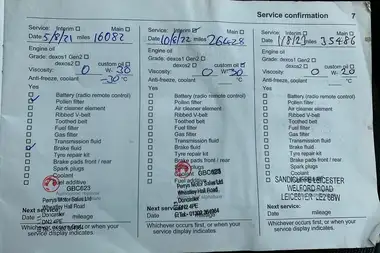 Service confirmation 7
Service: Interim Main
Date 5/8/21 miles 16082
Engine oil
Grade: dexos1 Gen2
dexos2 custom oil
Viscosity: 0 W- 30
Anti-freeze, coolant -30 °C
Yes
Battery (radio remote control)
Pollen filter
Air cleaner element
Ribbed V-belt
Toothed belt
Fuel filter
Gas filter
Transmission fluid
Brake fluid
Tyre repair kit
Brake pads front / rear
Spark plugs
Coolant
Fuel additive
GBC623
Perrys Motor Sales Ltd
Wheatley Hall Road
Doncaster
DN2 4PE
Next service:
Date mileage
Whichever occurs first, or when your
service display indicates.
Service: Interim Main
Date 10/8/22 miles 26428
Engine oil
Grade: dexos1 Gen2
dexos2 custom oil
Viscosity: 0 W- 30
Anti-freeze, coolant °C
Yes
Battery (radio remote control)
Pollen filter
Air cleaner element
Ribbed V-belt
Toothed belt
Fuel filter
Gas filter
Transmission fluid
Brake fluid
Tyre repair kit
Brake pads front / rear
Spark plugs
Coolant
GBC623
Perrys Motor Sales Ltd
Wheatley Hall Road
Doncaster
DN2 4PE
Next service:
Date mileage
Whichever occurs first, or when your
service display indicates.
Service: Interim Main
Date 1/8/23 miles 35486
Engine oil
Grade: dexos1 Gen2
dexos2 custom oil
Viscosity: 0 W- 20
Anti-freeze, coolant °C
Yes
Battery (radio remote control)
Pollen filter
Air cleaner element
Ribbed V-belt
Toothed belt
Fuel filter
Gas filter
Transmission fluid
Brake fluid
Tyre repair kit
Brake pads front / rear
Spark plugs
SANDICLIFFE LEICESTER
WELFORD ROAD
LEICESTER LE2 6BW
Next service:
Date mileage
Whichever occurs first, or when your
service display indicates.